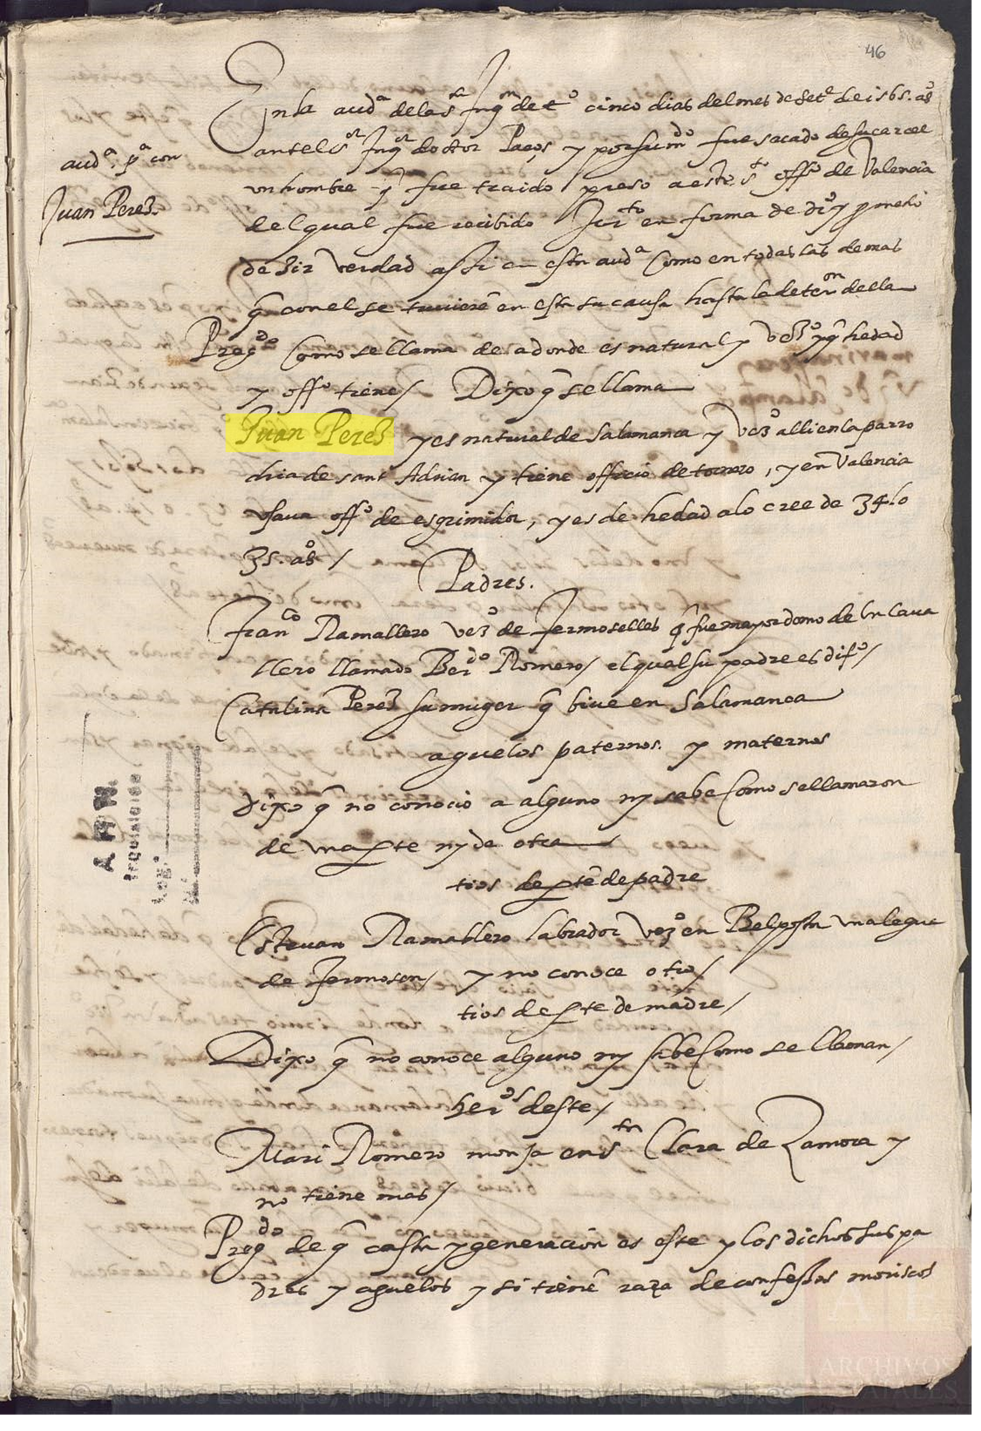 46
En la aud.ª de la s.ta Inq.on de t.o cinco dias del mes de Set.e de 1565. a.os
ante el s.r Inq.or doctor Paços y por su m.do fue sacado de su carcel
aud.ª p.ª con
Juan Perez.
un hombre q̃ fue traido preso a este s.to off.o de Valencia
del qual fue recibido Jur.to en forma de d.o y prometio
de dezir verdad assi en esta aud.ª como en todas las demas
q̃ con el se tuvierẽ en esta su causa hasta la deter.on della
Preg.do como se llama de adonde es natural y vez.o y q̃ hedad
y off.o tiene / Dixo q̃ se llama
Juan Perez y es natural de Salamanca y vez.o alli en la parro
chia de sant Adrian y tiene officio de tornero, y en Valencia
usava off.o de esgrimidor, y es de hedad a lo cree de 34. o
35. a.os /
Padres.
Fran.co Ramallero vez.o de Fermoselles q̃ fue mayordomo de un cava
llero llamado Ber.do Romero / el qual su padre es dif.o /
Catalina Perez su muger q̃ bive en Salamanca
aguelos paternos. y maternos
Dixo q̃ no conocio a alguno ny sabe como se llamaron
de una pte ny de otra
tios de pte de padre
Estevan Ramallero labrador vez.o en una legua
de / y no conoce otro /
tios de pte de madre /
Dixo q̃ no conoce alguno ny sabe como se llaman /
her.os deste /
Mari Romero monja en s.ta Clara de Zamora y
no tiene mas /
Preg.do de q̃ casta y generacion es este y los dichos sus pa
dres y aguelos y si tienẽ raza de confessos moriscos
AHN
Inquisición
Leg.º
N.º
ARCHIVOS
ESTATALES
© Archivos Estatales, http://pares.culturaydeporte.gob.es